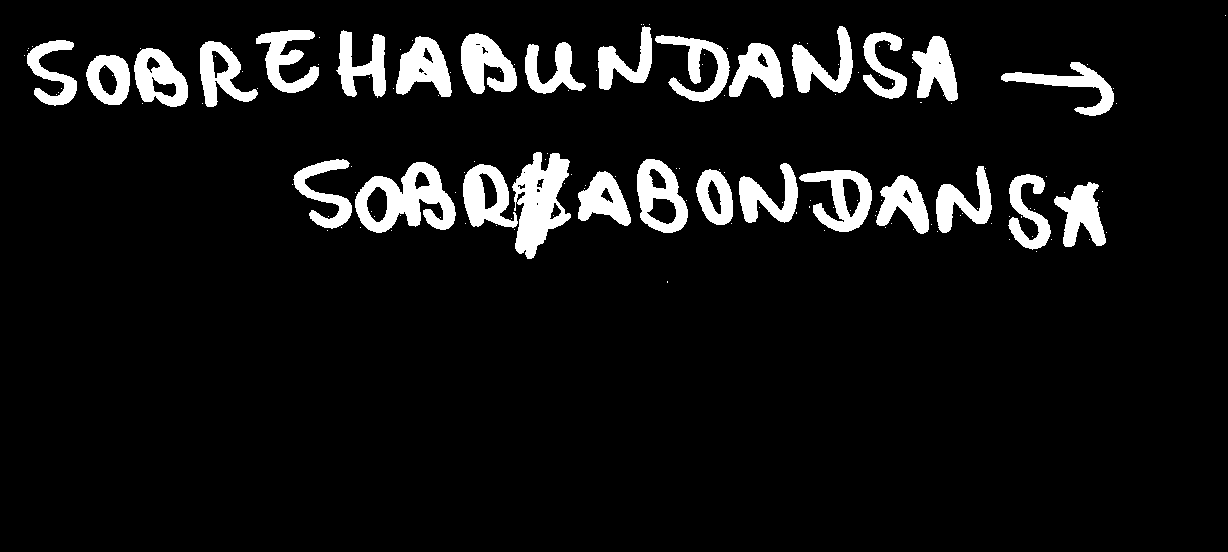 SOBREHABUNDANSA →
SOBRABONDANSA